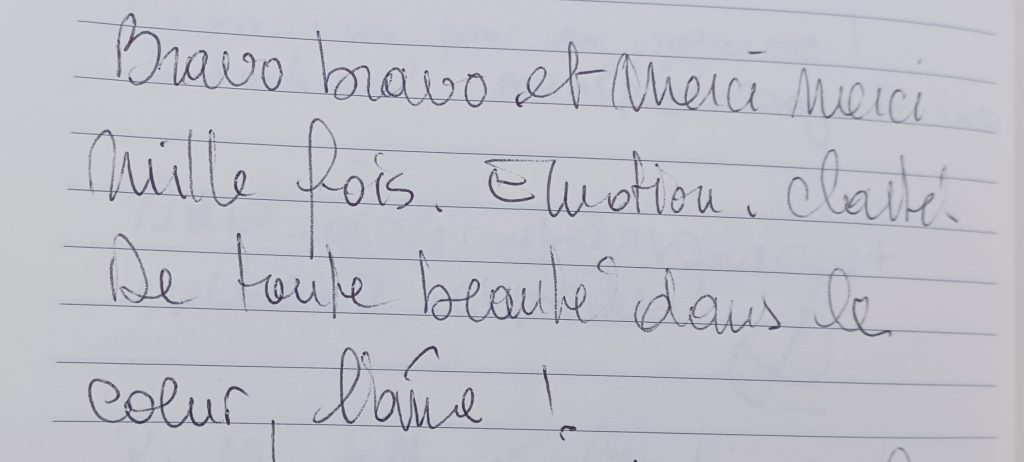 Bravo bravo et merci merci
mille fois. Emotion. Clarté.
De toute beauté dans le
coeur, l'âme !